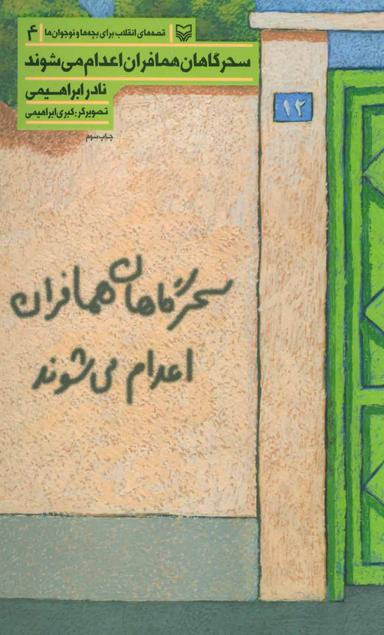 قصه‌های انقلاب برای بچه‌ها و نوجوان‌ها ۴
سحرگاهان همافران اعدام می‌شوند
نادر ابراهیمی
تصویرگر: کبری ابراهیمی
چاپ سوم
۱۲
سحرگاهان همافران
اعدام می‌شوند